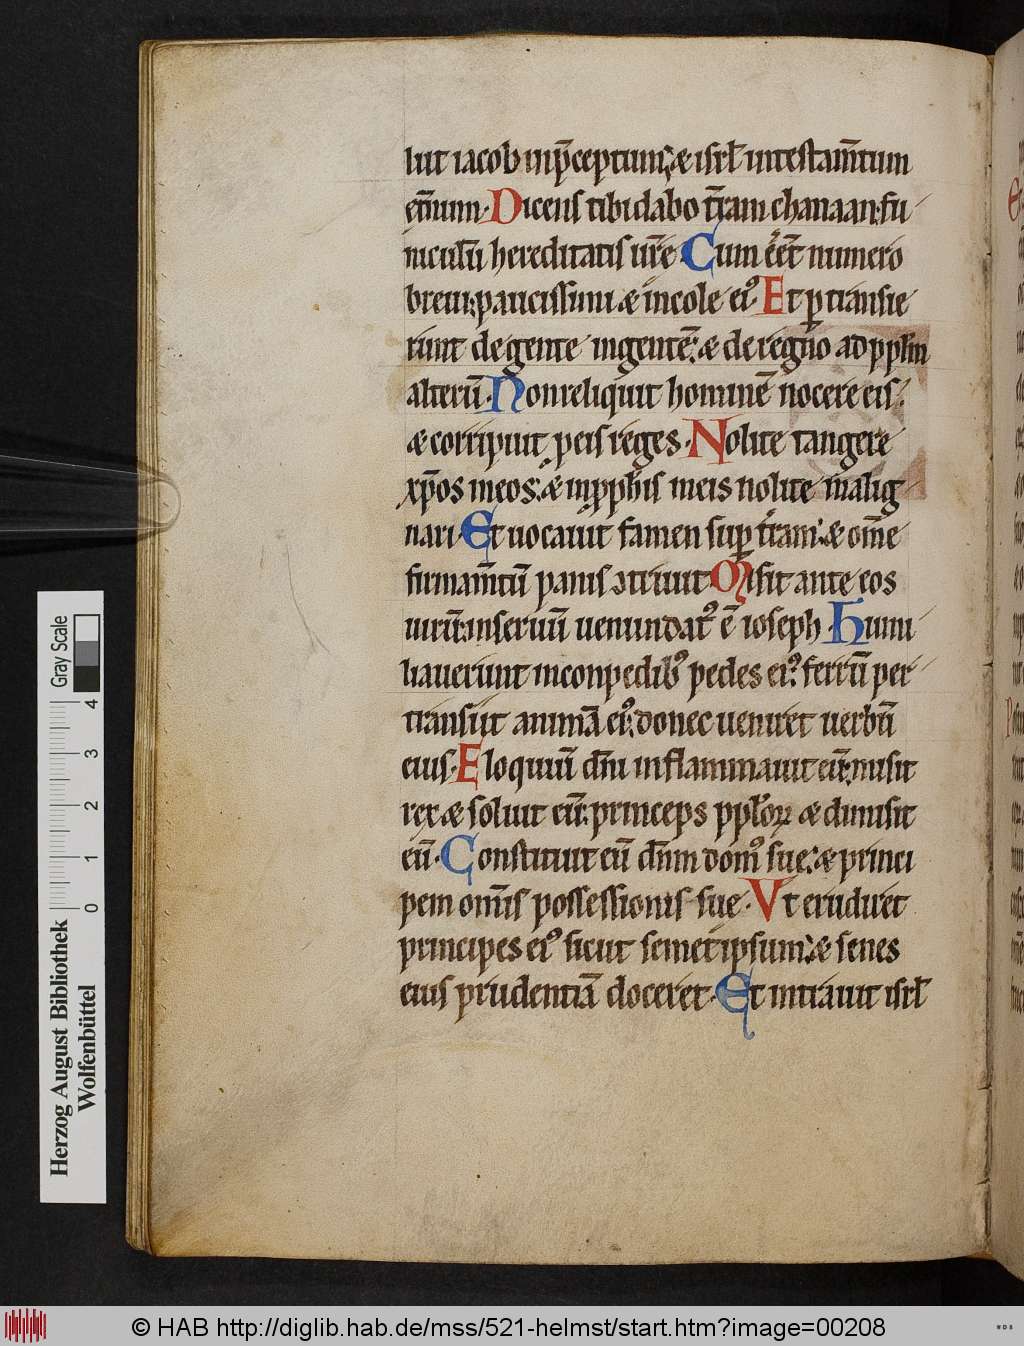 luit iacob inp̄ceptum; & isrl̄ intestam̄tum
et̄num. Dicens tibi dabo tr̄am chanaan: fu
niculū hereditatis ur̄e. Cum eēt numero
breui; paucissimi & incole eiꝰ. Et ꝑtransie
runt de gente ingentē: & de regno ad pplm̄
alterū. Non reliquit hominē nocere eis:
& corripuit ꝓeis reges. Nolite tangere
xp̄os meos: & inꝓph̄is meis nolite malig
nari. Et uocauit famen suꝑ tr̄am: & om̄e
firmam̄tū panis ꝯtriuit. Misit ante eos
uirū: inseruū uenundatꝰ ē ioseph. Humi
liauerunt inconpedibꝰ pedes eiꝰ: ferrū per
transiit animā eiꝰ: donec ueniret uerbū
eius. Eloquiū dn̄i inflammauit eū: misit
rex & soluit eū: princeps pplōꝝ & dimisit
eū. Constituit eū dn̄m domꝰ sue: & princi
pem om̄is possessionis sue. Vt erudiret
principes eiꝰ sicut semetipsum: & senes
eius prudentiā doceret. Et intrauit isrl̄
Gray Scale
4
3
2
1
0
Herzog August Bibliothek
Wolfenbüttel
© HAB http://diglib.hab.de/mss/521-helmst/start.htm?image=00208